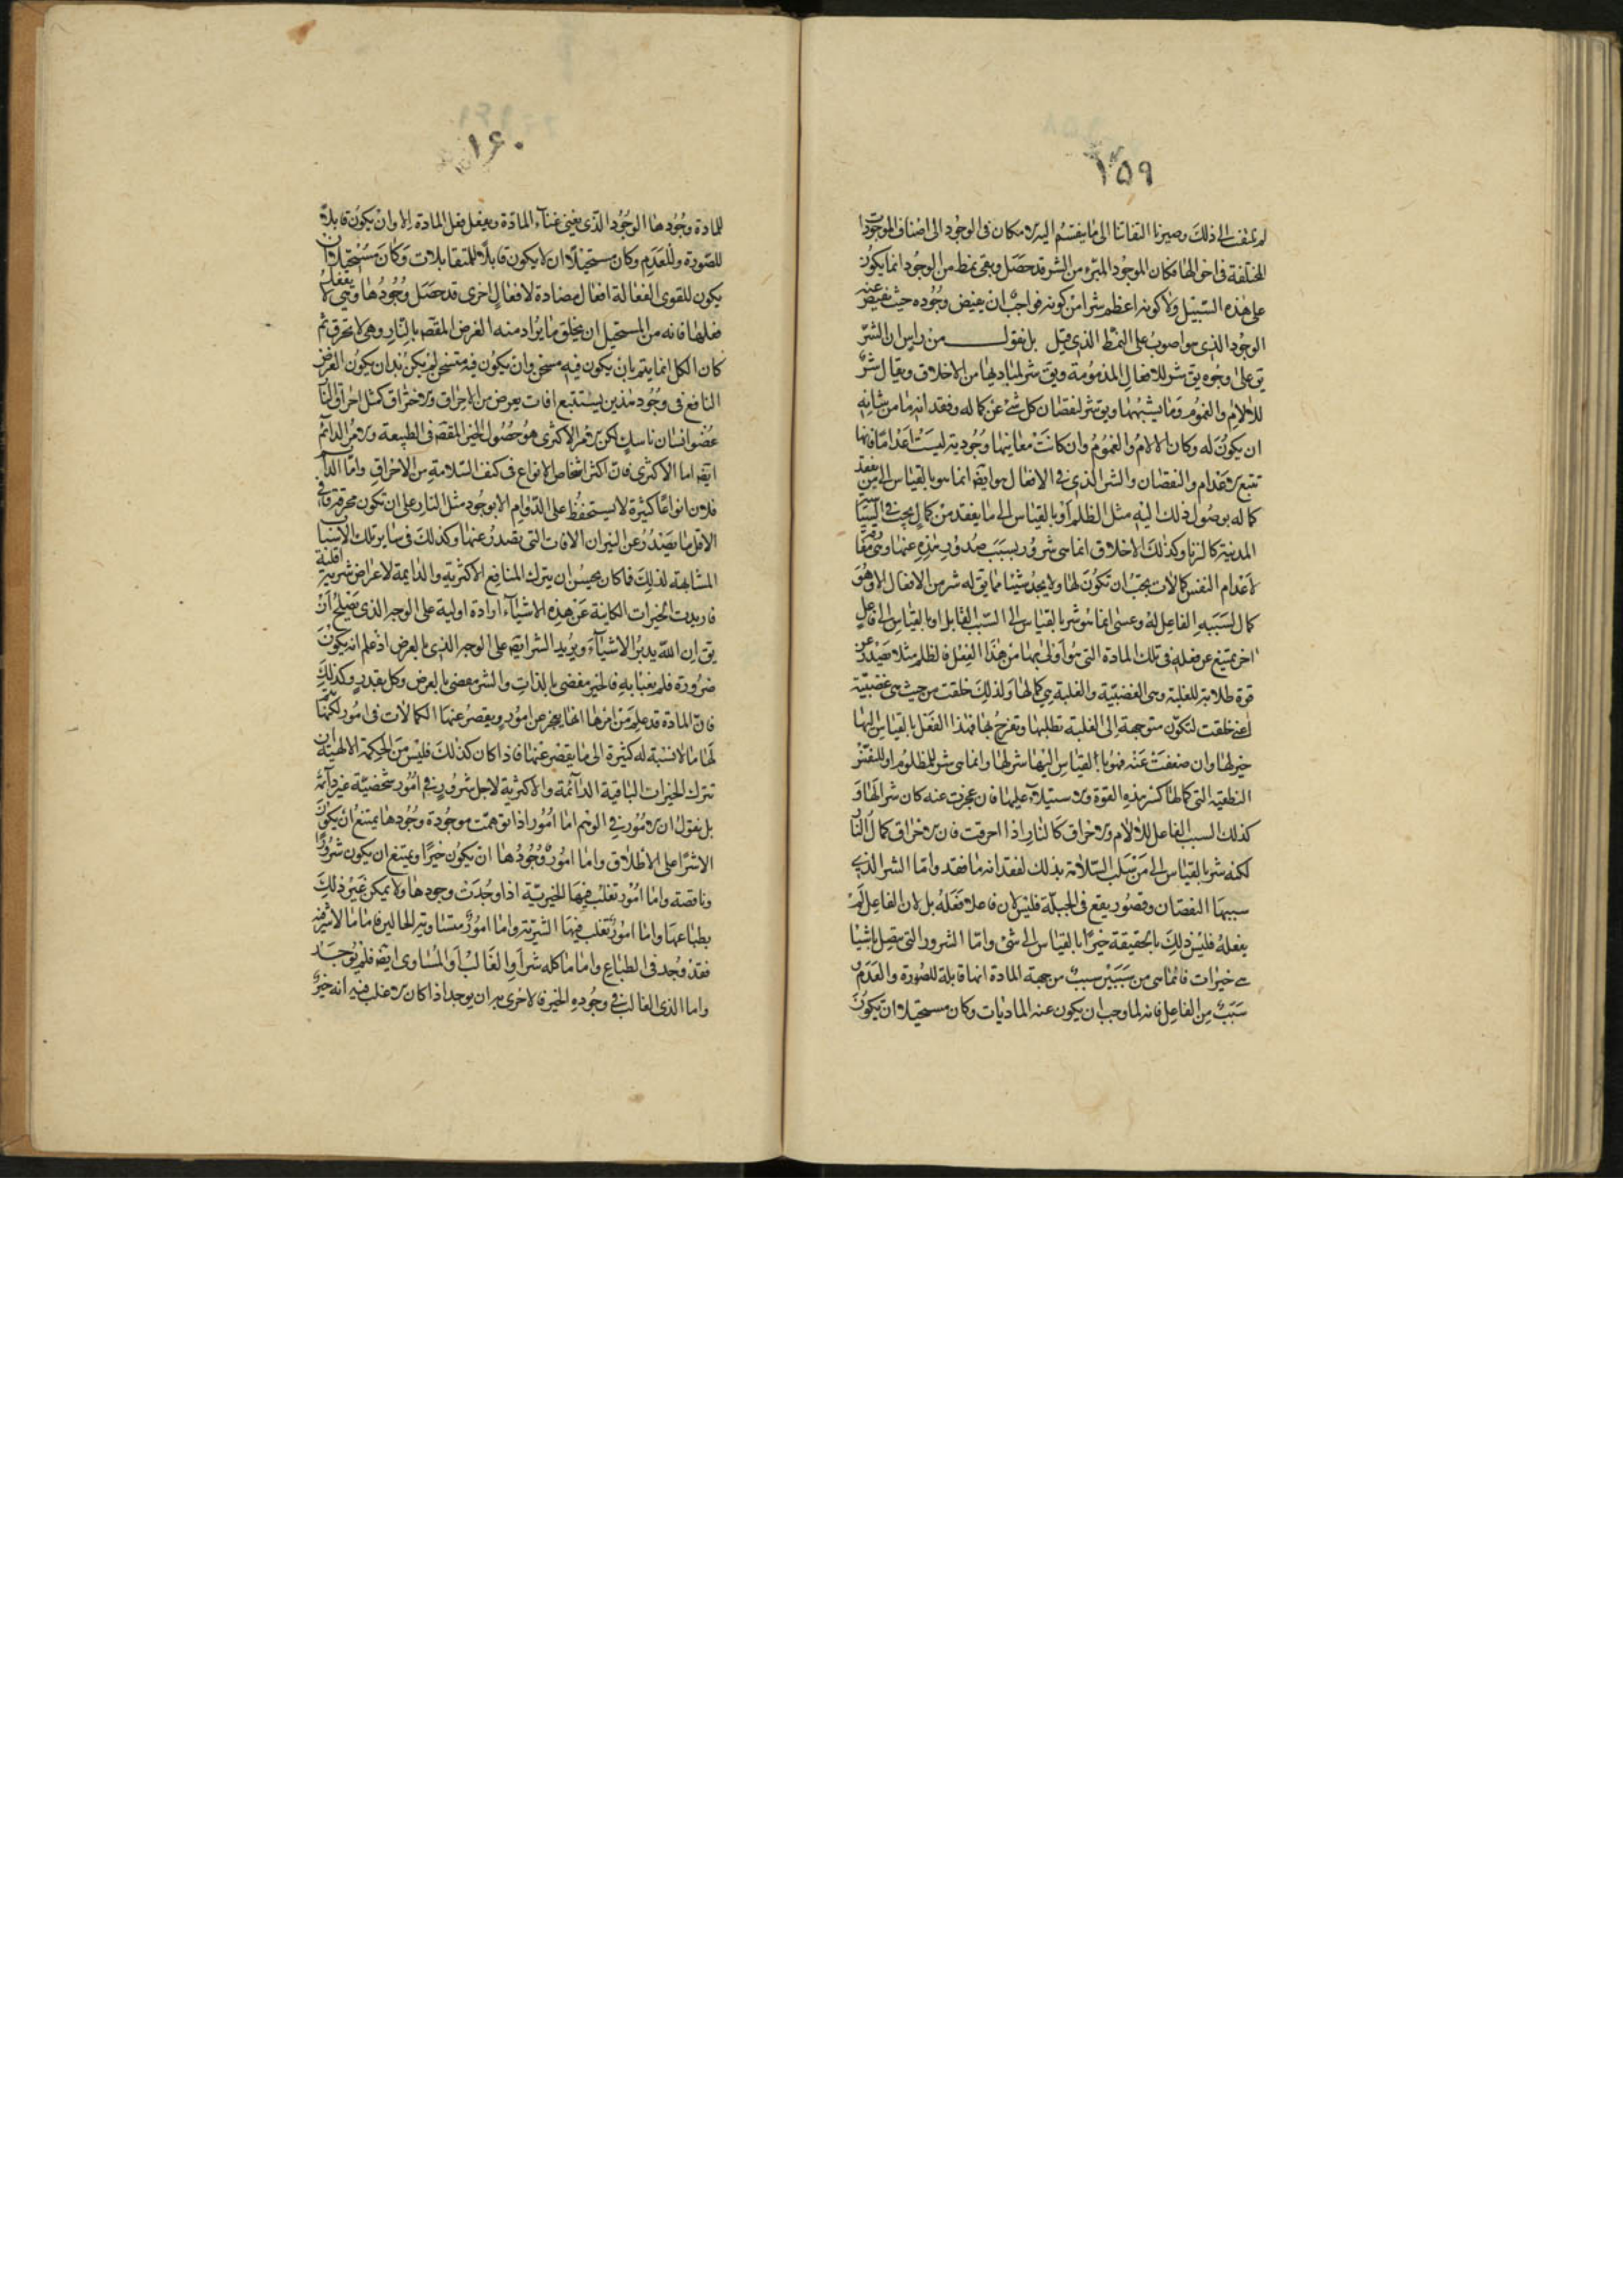 ١٥٩
لم نلتفت الى ذلك وصيرنا التفاتنا الى ما ينقسم اليه الامكان فى الوجود الى اصناف الموجودات
المختلفة فى احوالها فكان الموجود المبرء من الشر قد حصل وبقى نمط من الوجود انما يكون
على هذه السبيل ولا كونه اعظم شرا من كونه فواجب ان يفيض وجوده حيث يفيض عنه
الوجود الذى هو اصوب على النمط الذى قيل بل نقول من راس ان الشر
يق على وجوه يق شر للافعال المذمومة ويق شر لمباديها من الاخلاق ويقال شر
للالام والغموم وما يشبهها ويق شر لنقصان كل شئ عن كماله وفقدانه ما من شانه
ان يكون له وكان الالام والغموم وان كانت معانيها وجودية ليست اعداما فانها
تتبع الاعدام والنقصان والشر الذى فى الافعال هو ايضا انما هو بالقياس الى من يفقد
كماله بوصول ذلك اليه مثل الظلم او بالقياس الى ما يفقد من كمال يجب فى السياسة
المدنية كالزنا وكذلك الاخلاق انما هى شرور بسبب صدور هذه عنها وهى مقارنة
لاعدام النفس كمالات يجب ان تكون لها ولا يجد شيئا مما يق له شر من الافعال الا وهو
كمال لسببه الفاعل له وعسى انما هو شر بالقياس الى السبب القابل او بالقياس الى فاعل
اخر يمتنع عن فعله فى تلك المادة التى هو اولى بها من هذا الفعل فالظلم مثلا يصدر عن
قوة طلابة للغلبة وهى الغضبية والغلبة هى كمالها ولذلك خلقت من حيث هى غضبية
اعنى خلقت لتكون متوجهة الى الغلبة تطلبها وتفرح بها فهذا الفعل بالقياس اليها
خير لها وان ضعفت عنه فهو بالقياس اليها شر لها وانما هى شر للمظلوم او للنفس
النطقية التى كمالها كسر هذه القوة والاستيلاء عليها فان عجزت عنه كان شرا لها و
كذلك السبب الفاعل للالام والاحراق كالنار اذا احرقت فان الاحراق كمال النار
لكنه شر بالقياس الى من سلب السلامة بذلك لفقدانه ما فقد واما الشر الذى
سببها النقصان وقصور يقع فى الجبلة فليس لان فاعلا فعله بل لان الفاعل لم
يفعله فليس ذلك بالحقيقة خيرا بالقياس الى شئ واما الشرور التى يتصل باشيا
هى خيرات فانما هى من سببين سبب من جهة المادة انها قابلة للصورة والعدم و
سبب من الفاعل فانه لما وجب ان يكون عنه الماديات وكان مستحيلا ان يكون
١۶٠
للمادة وجودها الوجود الذى يغنى غناء المادة ويفعل فعل المادة الا وان يكون قابلا
للصورة وللعدم وكان مستحيلا ان لا يكون قابلا للمتقابلات وكان مستحيلا ان
يكون للقوى الفعالة افعال مضادة لافعال اخرى قد حصل وجودها وهى لا يفعل
فعلها فانه من المستحيل ان يخلق ما يراد منه الغرض المقصد بالنار وهى لا تحرق ثم
كان الكل انما يتم بان يكون فيه مسخن وان يكون فيه متسخن لم يكن بد ان يكون الغرض
النافع فى وجود هذين يستتبع افات يعرض من الاحراق والاحتراق كمثل احراق النا
عضو انسان ناسك لكن الامر الاكثرى هو حصول الخير المقصد فى الطبيعة والامر الدائم
ايضا اما الاكثرى فان اكثر اشخاص الانواع فى كنف السلامة من الاحراق واما الدائم
فلان انواعا كثيرة لا يستحفظ على الدوام الا بوجود مثل النار على ان تكون محرقة وفى
الاقل ما يصدر عن النيران الافات التى يصدر عنها وكذلك فى ساير تلك الاسباب
المشابهة لذلك فما كان يحسن ان يترك المنافع الاكثرية والدايمة لاعراض شرية اقلية
فاريدت الخيرات الكاينة عن هذه الاشياء ارادة اولية على الوجه الذى يصلح ان
يق ان الله يدبر الاشياء ويريد الشر ايضا على الوجه الذى بالعرض اذ علم انه يكون
ضرورة فلم يعبا به فالخير مقضى بالذات والشر مقضى بالعرض وكل بقدر وكذلك
فان المادة قد علم من امرها انها يعجز عن امور ويقصر عنها الكمالات فى امور لكنها يتم
لها ما لا نسبة له كثيرة الى ما يقصر عنها فاذا كان كذلك فليس من الحكمة الالهية ان
تترك الخيرات الباقية الدائمة والاكثرية لاجل شرور فى امور شخصية غير دائمة
بل نقول ان الامور فى الوهم اما امور اذا توهمت موجودة وجودها يمتنع ان يكون
الا شرا على الاطلاق واما امور وجودها ان يكون خيرا ويمتنع ان يكون شرورا
وناقصة واما امور تغلب فيها الخيرية اذا وجدت وجودها ولا يمكن غير ذلك
بطباعها واما امور تغلب فيها الشرية واما امور متساوية الحالين فاما ما لا شر فيه
فقد وجد فى الطباع واما ما كله شر او الغالب او المساوى ايضا فلم يوجد
واما الذى الغالب فى وجوده الخير فالاحرى به ان يوجد اذا كان الاغلب فيه انه خير